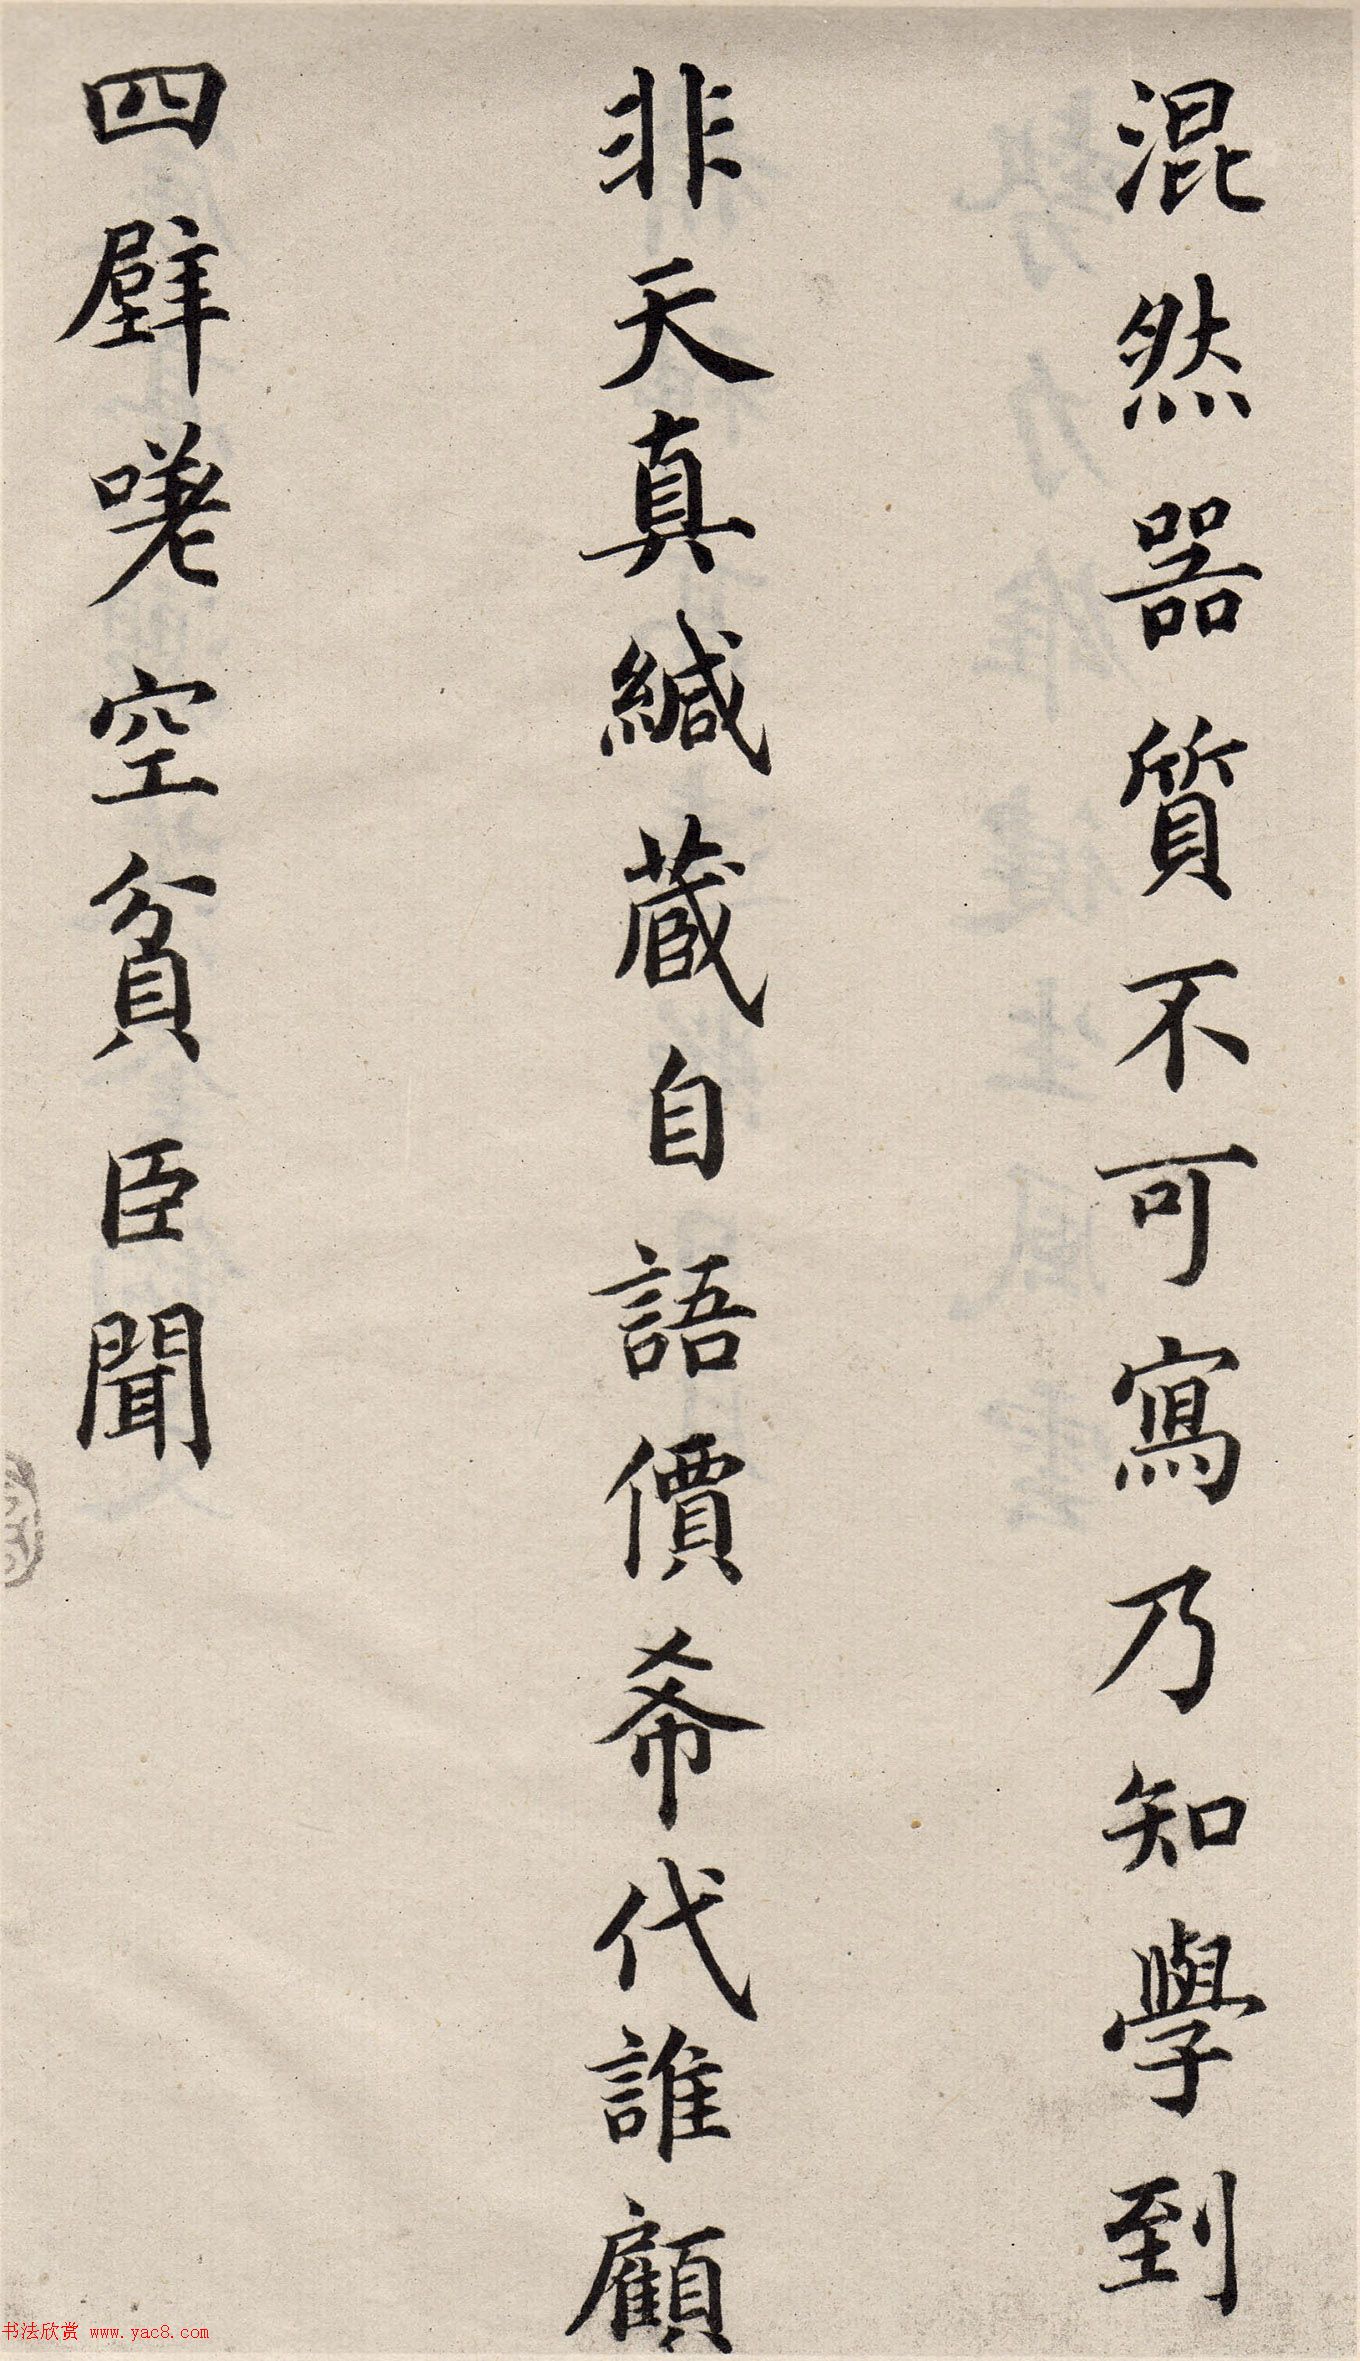 混然器質不可寫乃知學到
非天真緘蔵自語價希代誰顧
四壁嗟空貧臣聞
书法欣赏 www.yac8.com